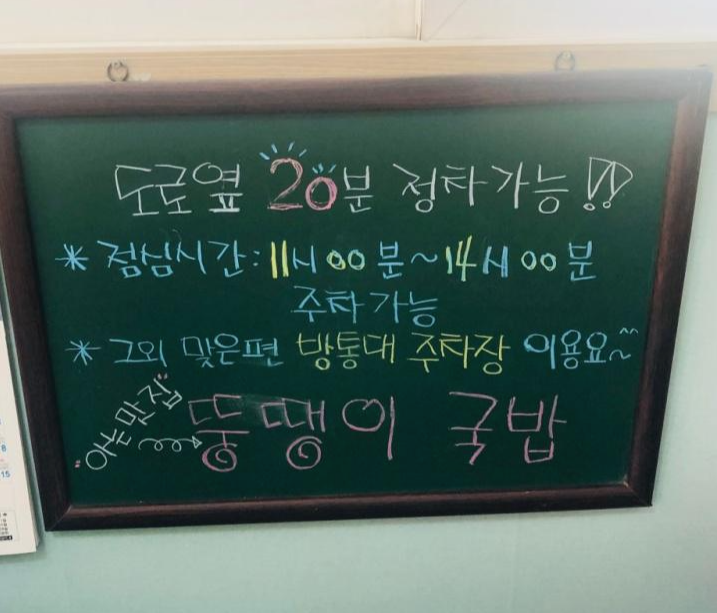 도로옆 20분 정차가능!!
* 점심시간:11시00분~14시00분
주차가능
* 그외 맞은편 방통대 주차장 이용요~^^
아는만집
뚱땡이 국밥
8
15